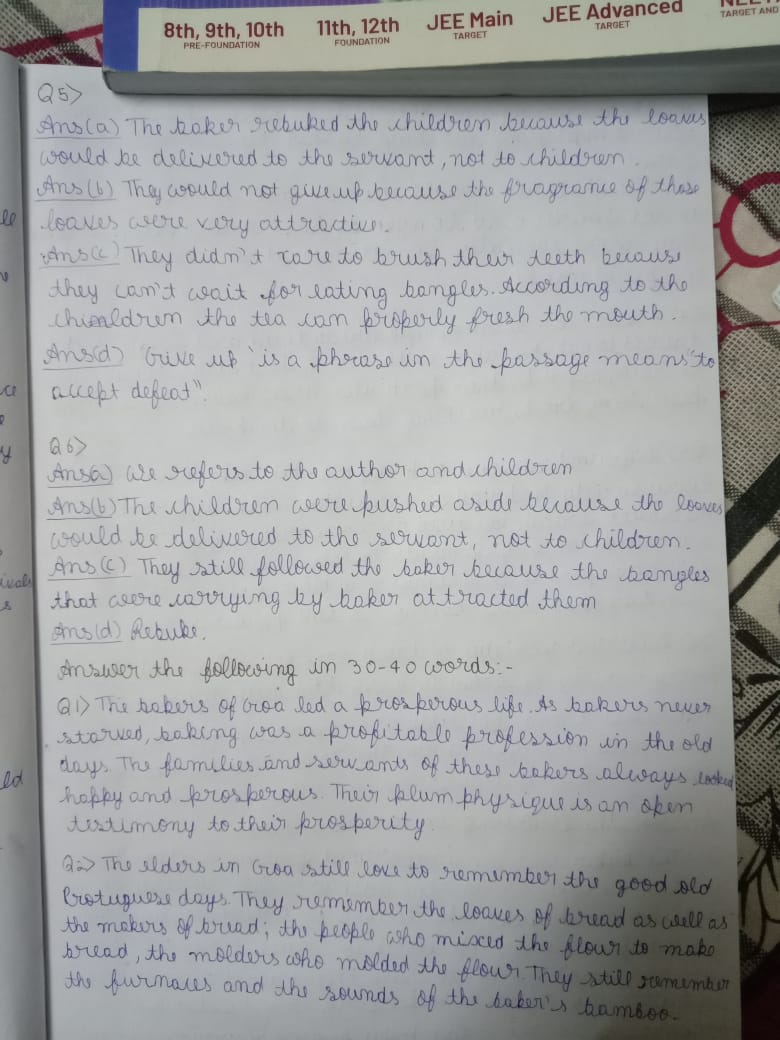 8th, 9th, 10th 11th, 12th JEE Main JEE Advanced
PRE-FOUNDATION FOUNDATION TARGET TARGET TARGET AND
Q5>
Ans(a) The baker rebuked the children because the loaves
would be delivered to the servant, not to children.
Ans(b) They would not give up because the fragrance of those
loaves were very attractive.
Ans(c) They didn't care to brush their teeth because
they can't wait for eating bangles. According to the
children the tea can properly fresh the mouth.
Ans(d) "Give up" is a phrase in the passage means "to
accept defeat".
Q6>
Ans(a) We refers to the author and children
Ans(b) The children were pushed aside because the loaves
would be delivered to the servant, not to children.
Ans(c) They still followed the baker because the bangles
that were carrying by baker attracted them
Ans(d) Rebuke.
Answer the following in 30-40 words:-
Q1> The bakers of Goa led a prosperous life. As bakers never
starved, baking was a profitable profession in the old
days. The families and servants of these bakers always looked
happy and prosperous. Their plum physique is an open
testimony to their prosperity
Q2> The elders in Goa still love to remember the good old
Protuguese days. They remember the loaves of bread as well as
the makers of bread; the people who mixed the flour to make
bread, the molders who molded the flour. They still remember
the furnaces and the sounds of the baker's bamboo.